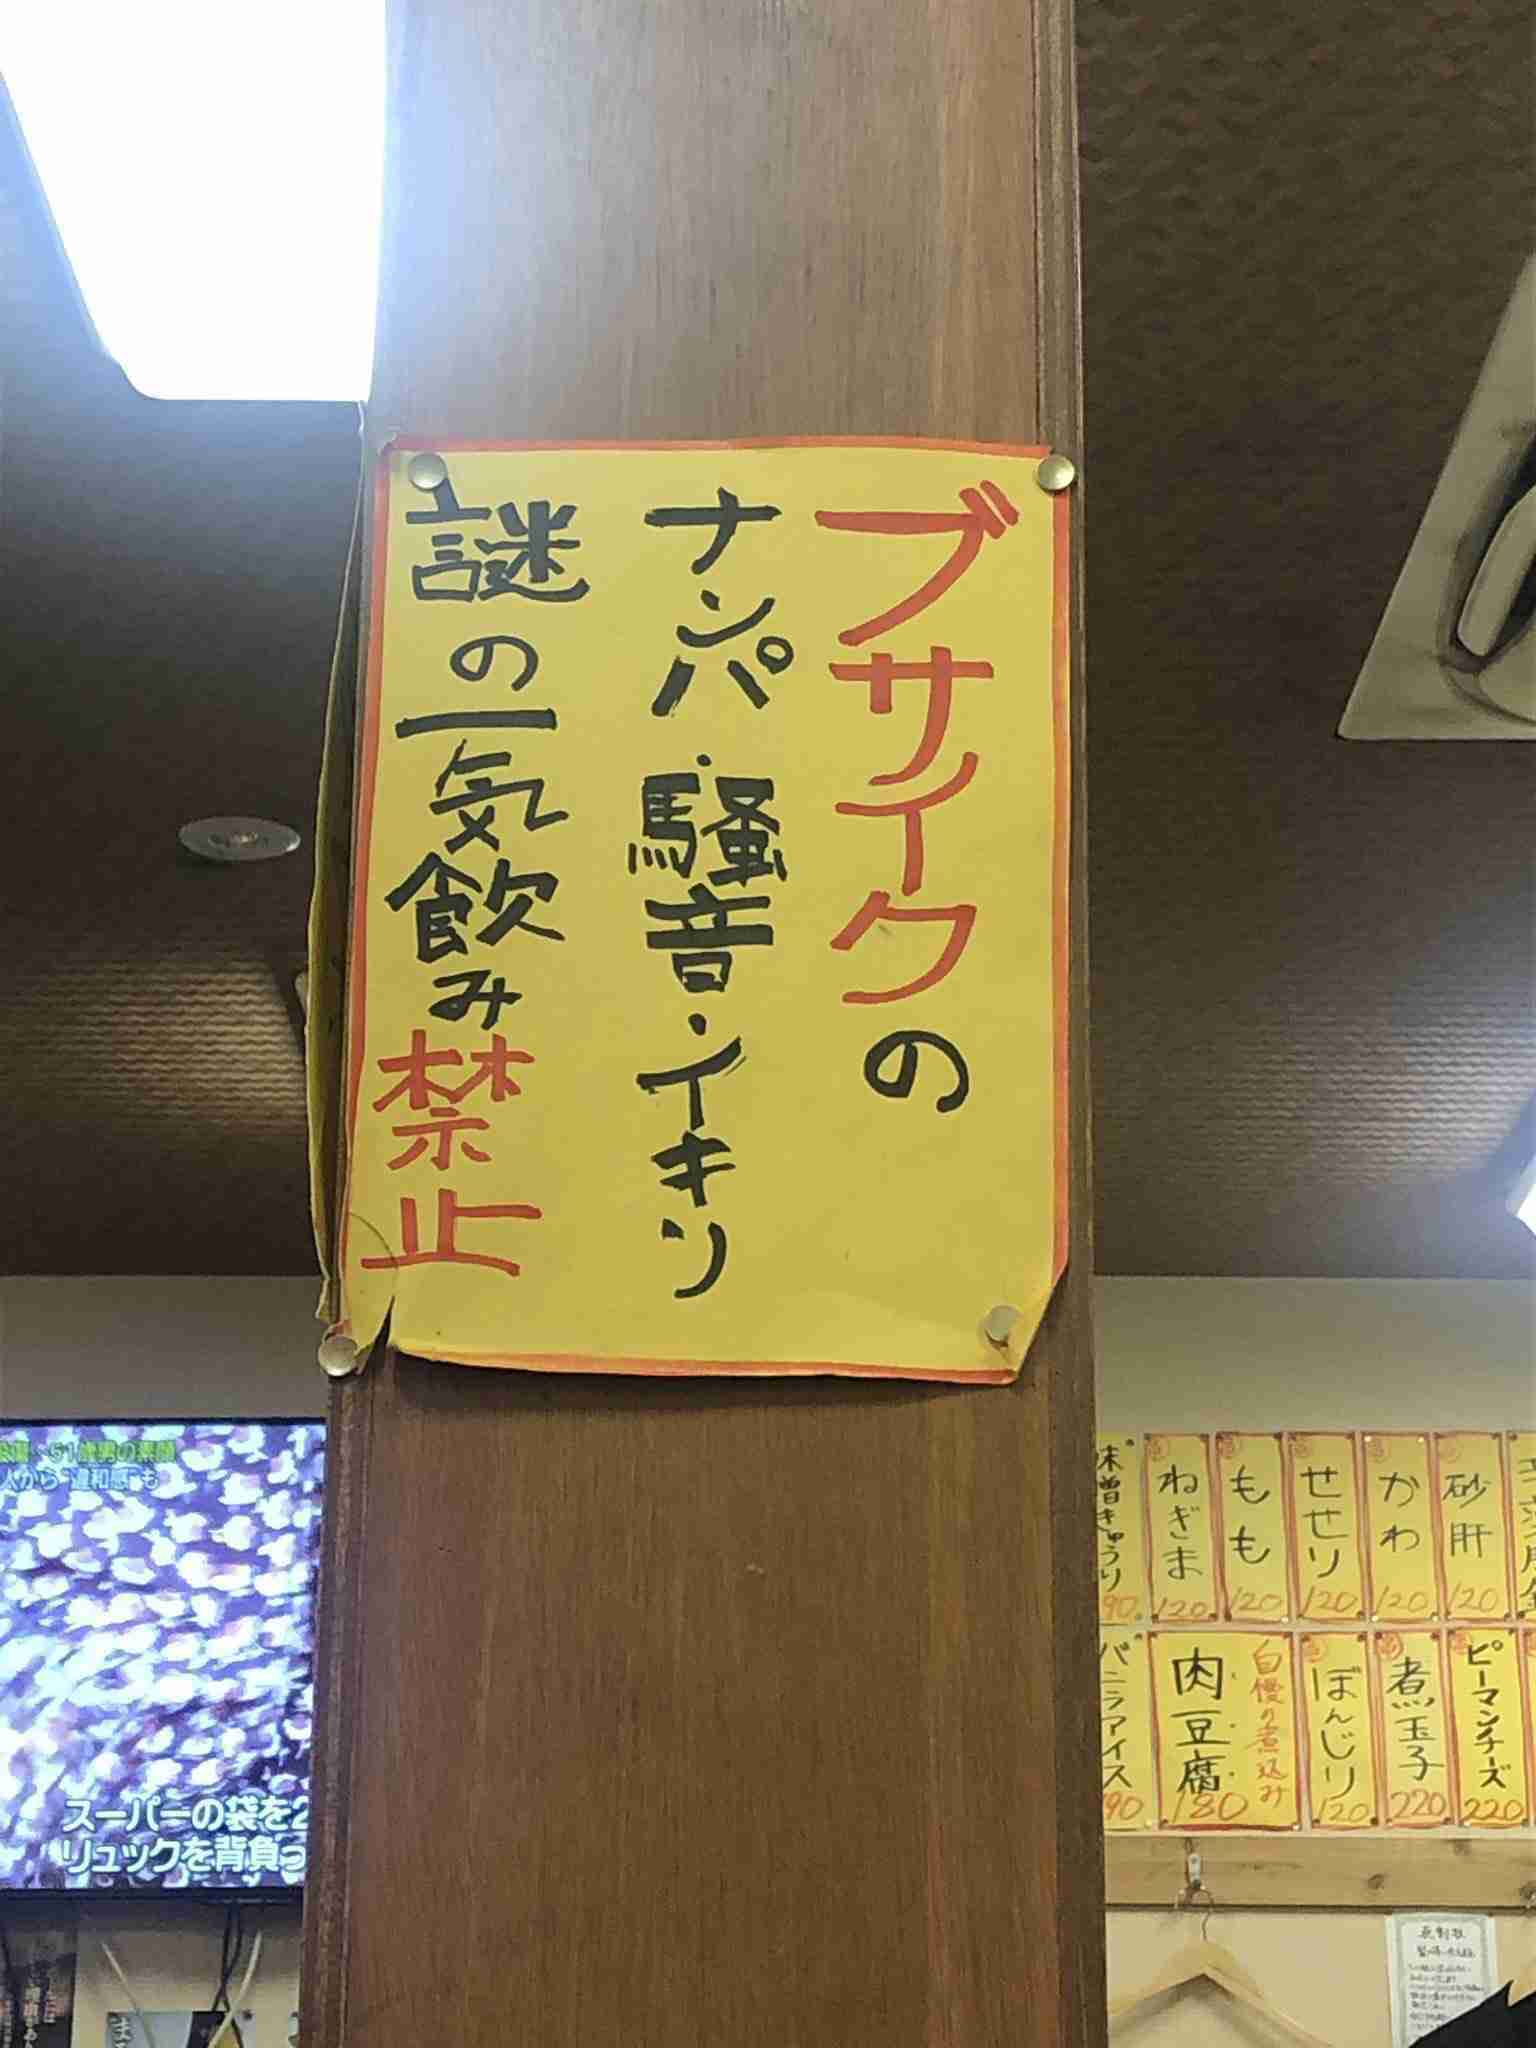 ブサイクの
ナンパ・騒音・イキリ
謎の一気飲み禁止
51歳男の素顔
人から"違和感"も
スーパーの袋を2
リュックを背負っ
味噌きゅうり
90
ねぎま
120
もも
120
せせり
120
かわ
120
砂肝
120
バニラアイス
90
自慢の煮込み
肉豆腐
180
ぼんじり
120
煮玉子
220
ピーマンチーズ
220